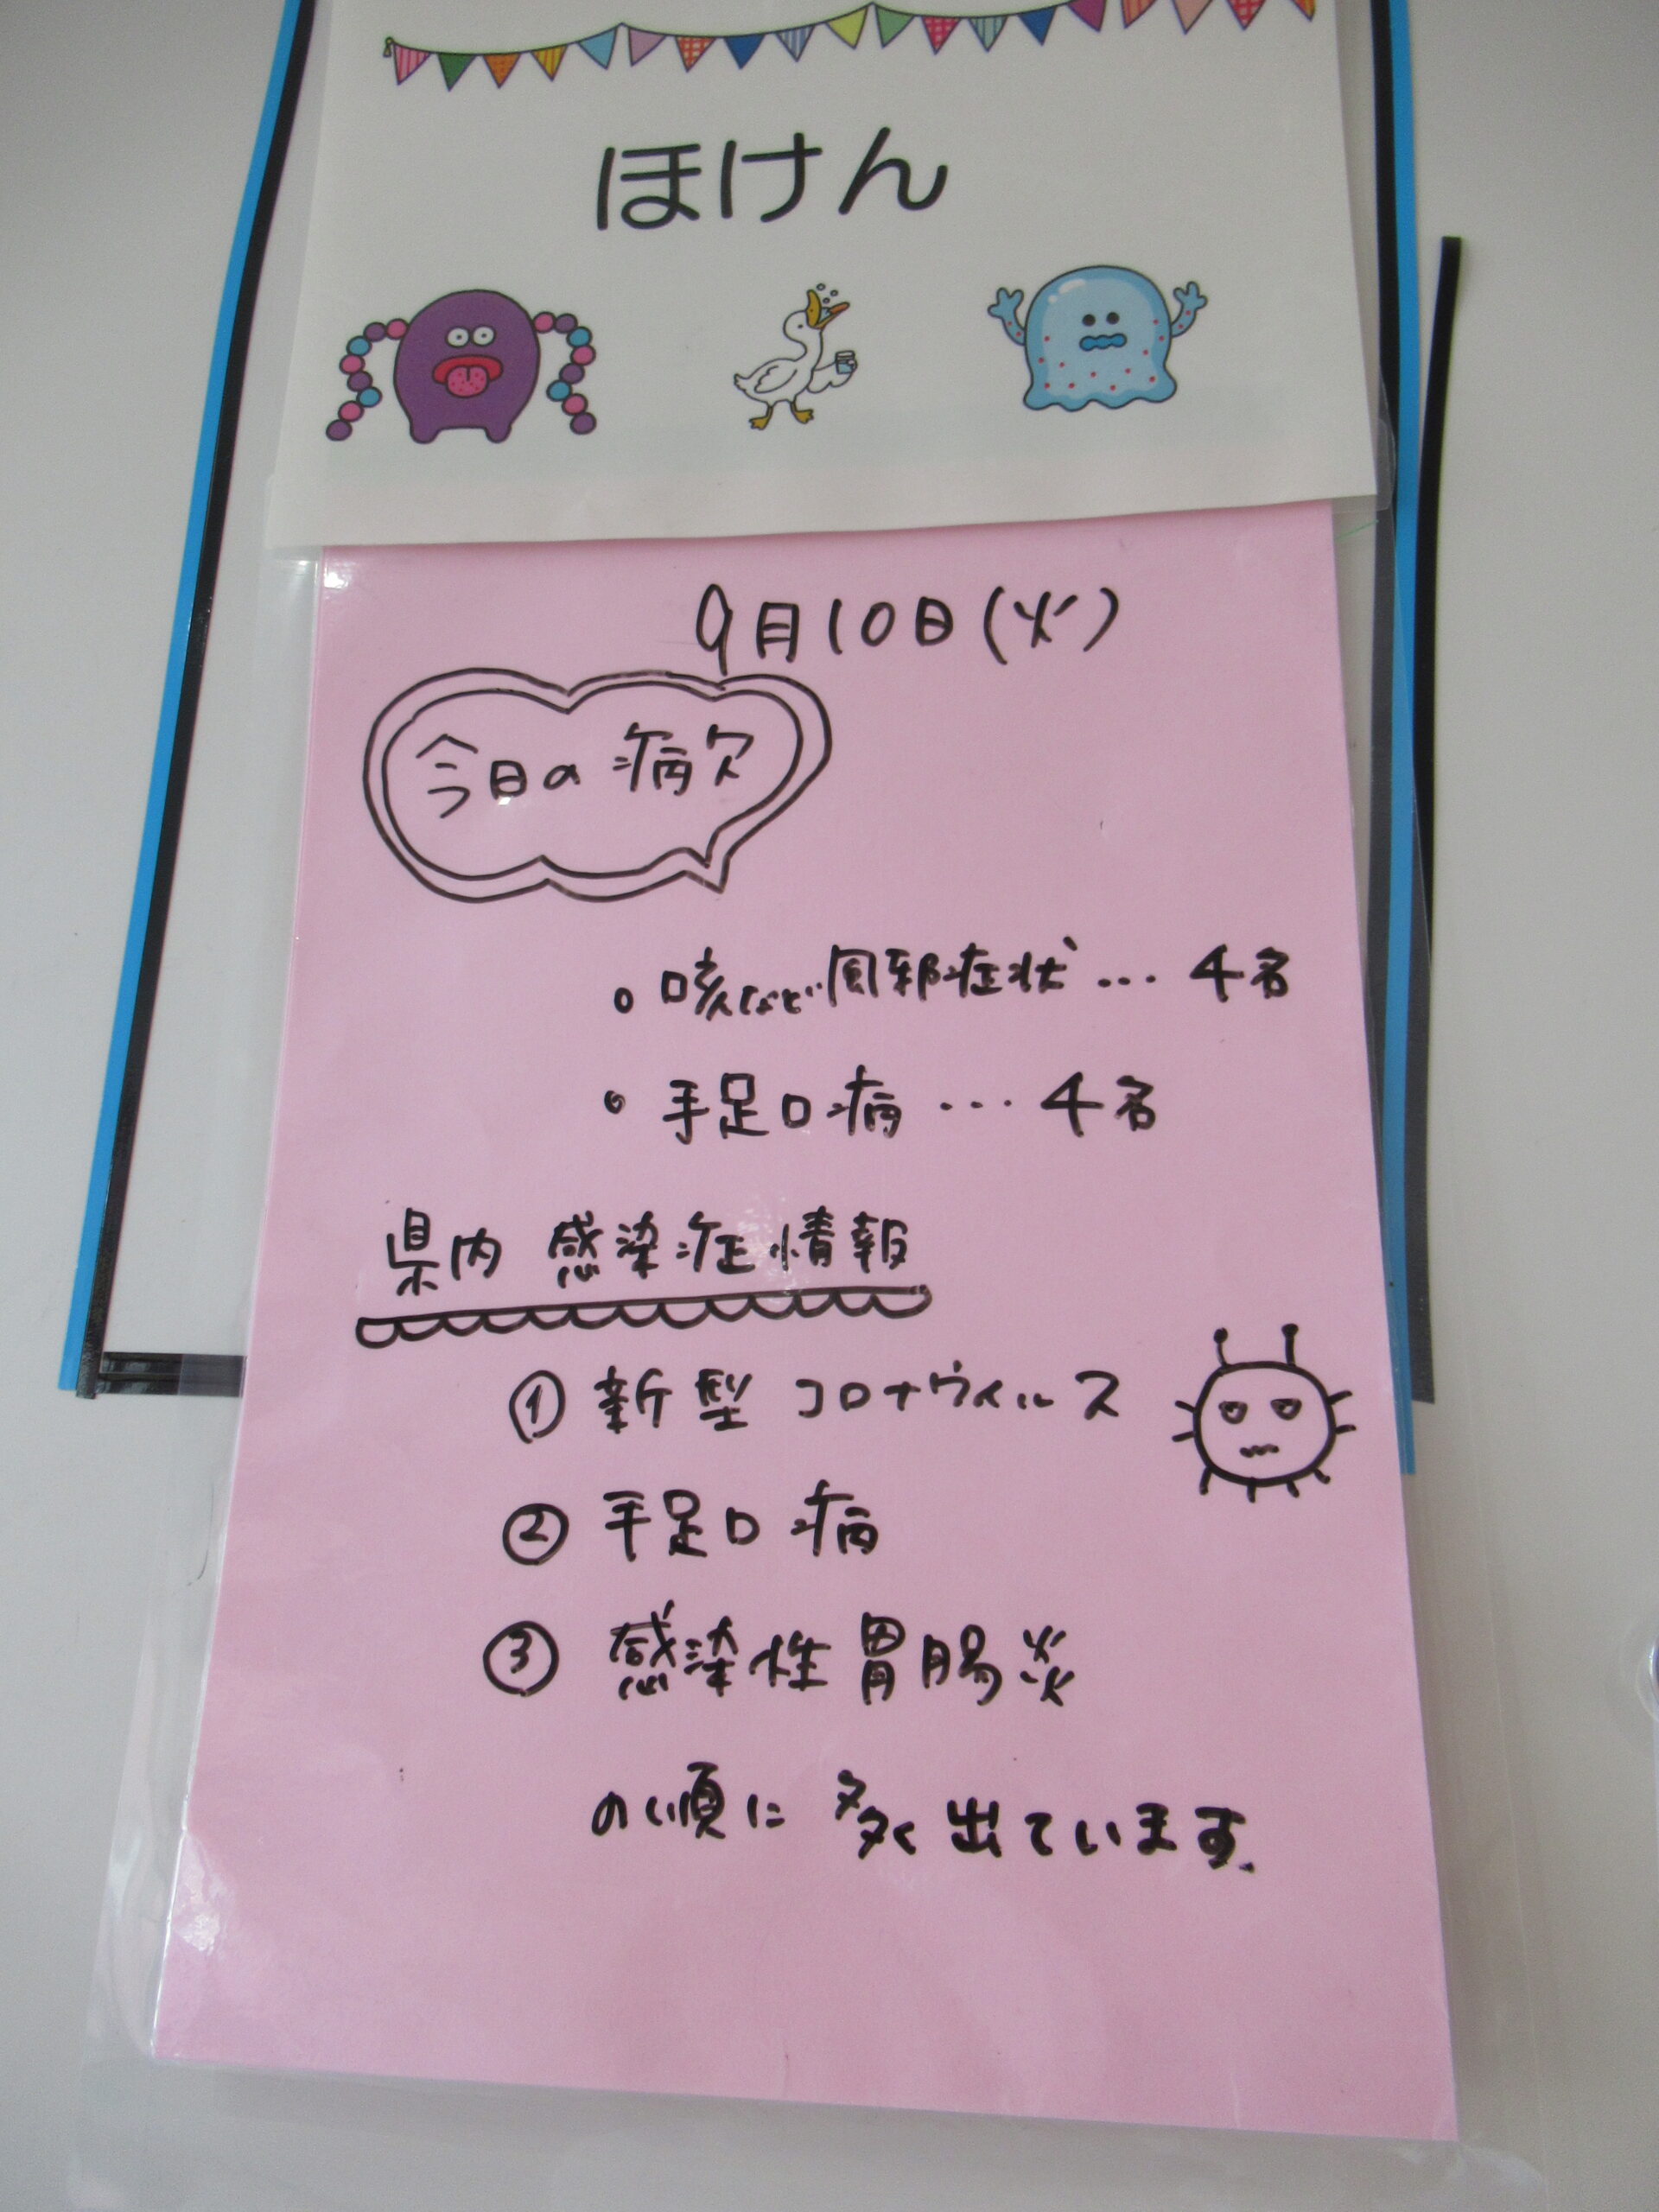 ほけん
9月10日(火)
今日の病欠
。咳など風邪症状…4名
。手足口病…4名
県内 感染症情報
① 新型コロナウィルス
② 手足口病
③ 感染性胃腸炎
の順に多く出ています.